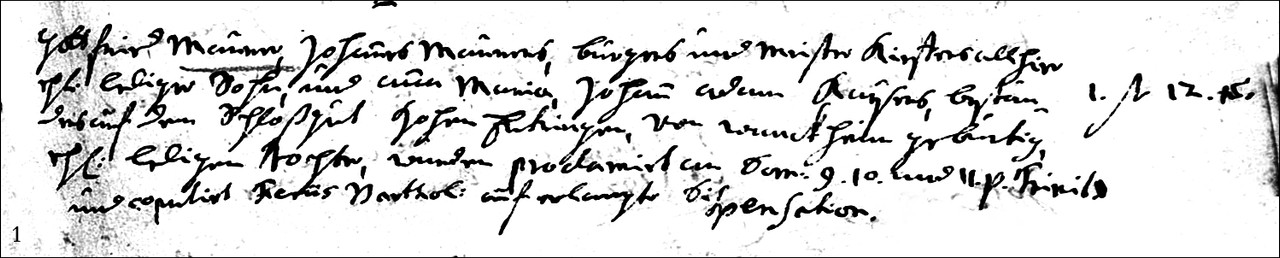 Gottfried Maurer, Johannes Maurers, burgers und Meister Kiefers allhier
ehl. lediger Sohn, und anna Maria, Johann adam Kaÿsers, bestän-
ders auf dem Schloßgut Hohen Entringen, von gebürtig, 1. fl 12. x.
ehl. ledigen Tochter, wurden proclamirt am Dom: 9. 10. und 11. p. Trinit.
und copulirt Barthol: auf erlangte Dispensation.
1